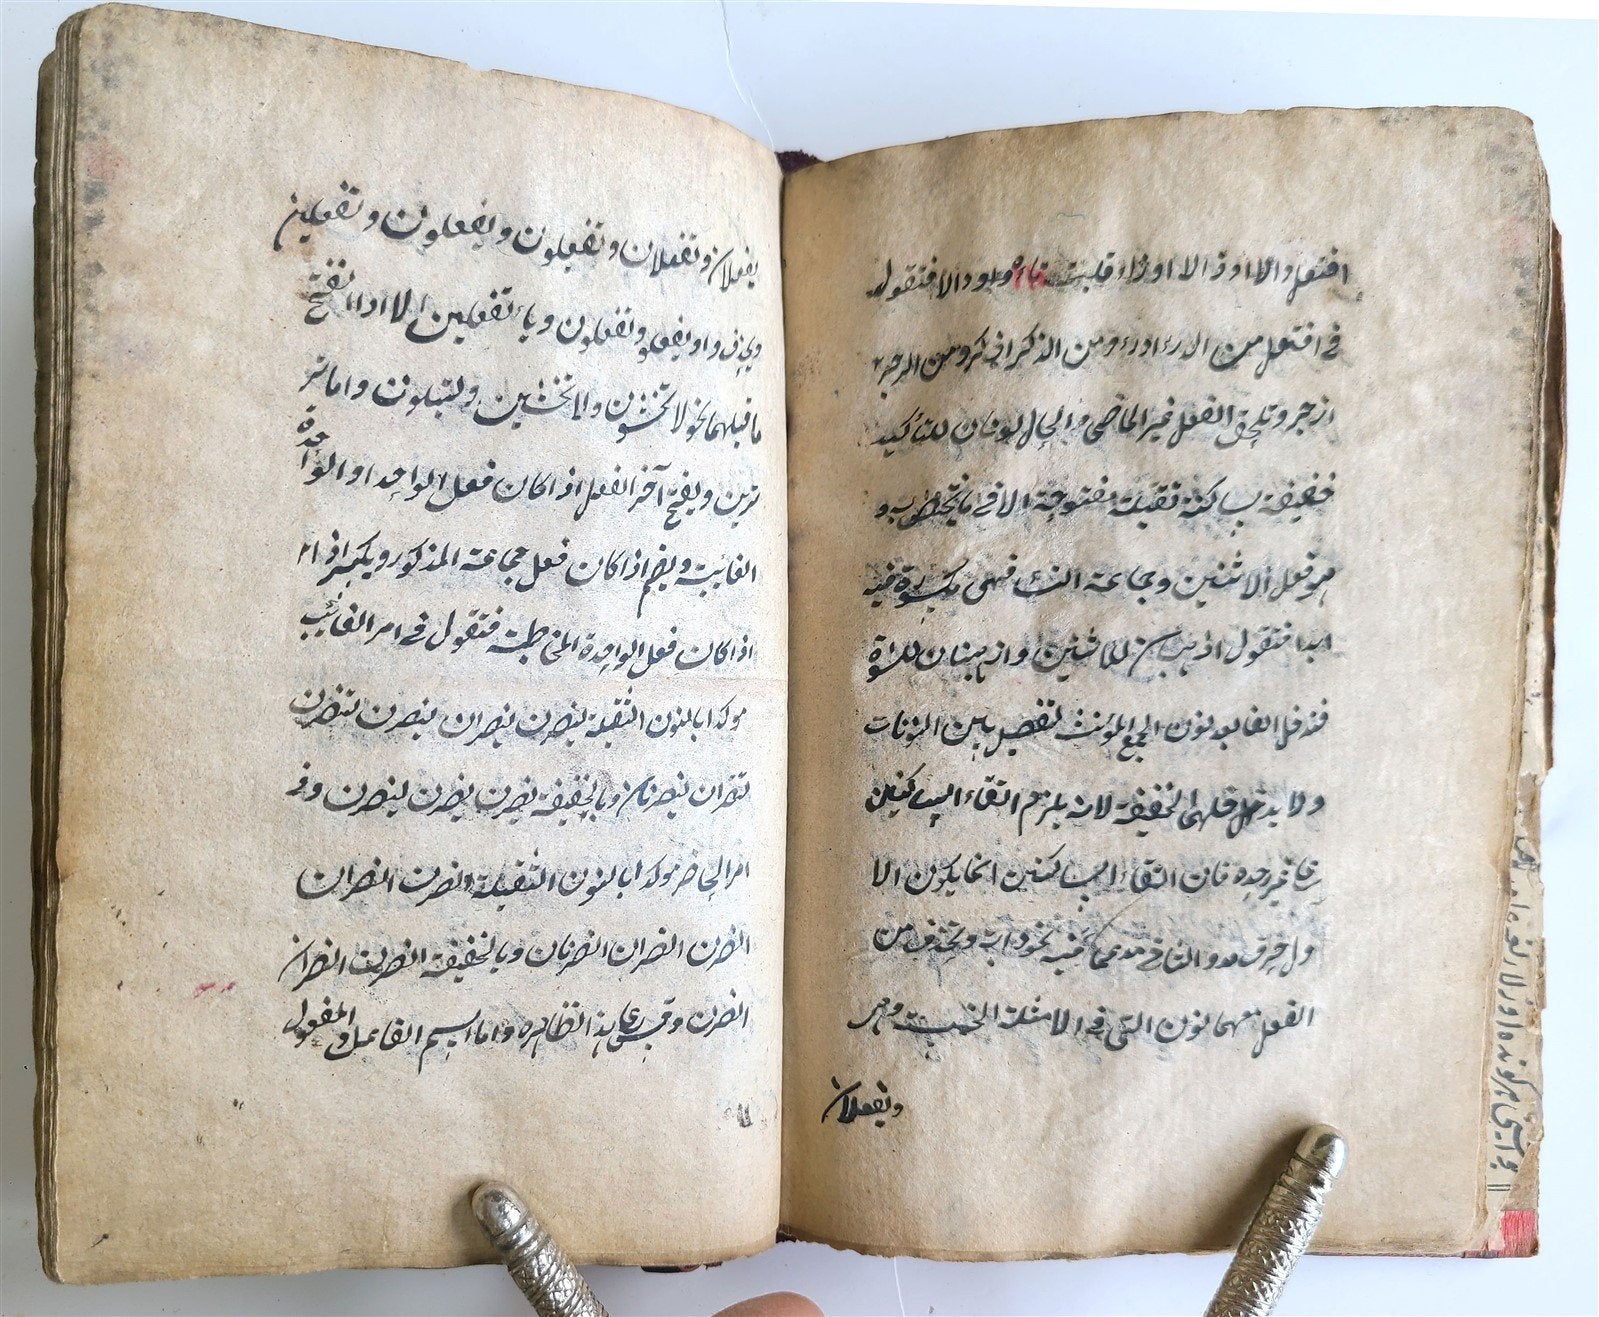 افتعل دالا او ذالا او زاء قلبت تاءه دالا فتقول
في افتعل من الدرء ادرء ومن الذكر اذكر ومن الزجر
ازجر وتلحق الفعل غير الماضي والحال نونان للتأكيد
خفيفة ساكنة ثقيلة مفتوحة الا فيما تختص به و
هو فعل الاثنين وجماعة النساء فهي مكسورة فيه
ابدا فتقول اذهبان للاثنين واذهبنان للنسوة
فتدخل الفا بعد نون الجمع المؤنث لتفصل بين النونات
ولا يدخلهما الخفيفة لانه يلزم التقاء الساكنين
على غير حده فان التقاء الساكنين انما يكون الا
ول حرف مد والثاني مدغما نحو دابة ويحذف من
الفعل معهما نون التي في الامثلة الخمسة وهي
وتفعلان
يفعلان وتفعلان وتفعلون ويفعلون وتفعلين
ويحذف واو يفعلون وتفعلون وياء تفعلين الا اذا انفتح
ما قبلهما نحو لا تخشون ولا تخشين ولتبلون واما
ترين ويفتح آخر الفعل اذا كان فعل الواحد او الواحدة
الغائبة ويضم اذا كان فعل جماعة المذكور ويكسر
اذا كان فعل الواحدة المخاطبة فتقول في امر الغائب
موكدا بالنون الثقيلة لينصرن لينصران لينصرن لتنصرن
لتنصران لينصرنان وبالخفيفة لينصرن لينصرن لتنصرن وفي
امر الحاضر موكدا بالنون الثقيلة انصرن انصران
انصرن انصران انصرنان وبالخفيفة انصرن انصرن
انصرن وقس على هذا نظائره واما اسم الفاعل والمفعول